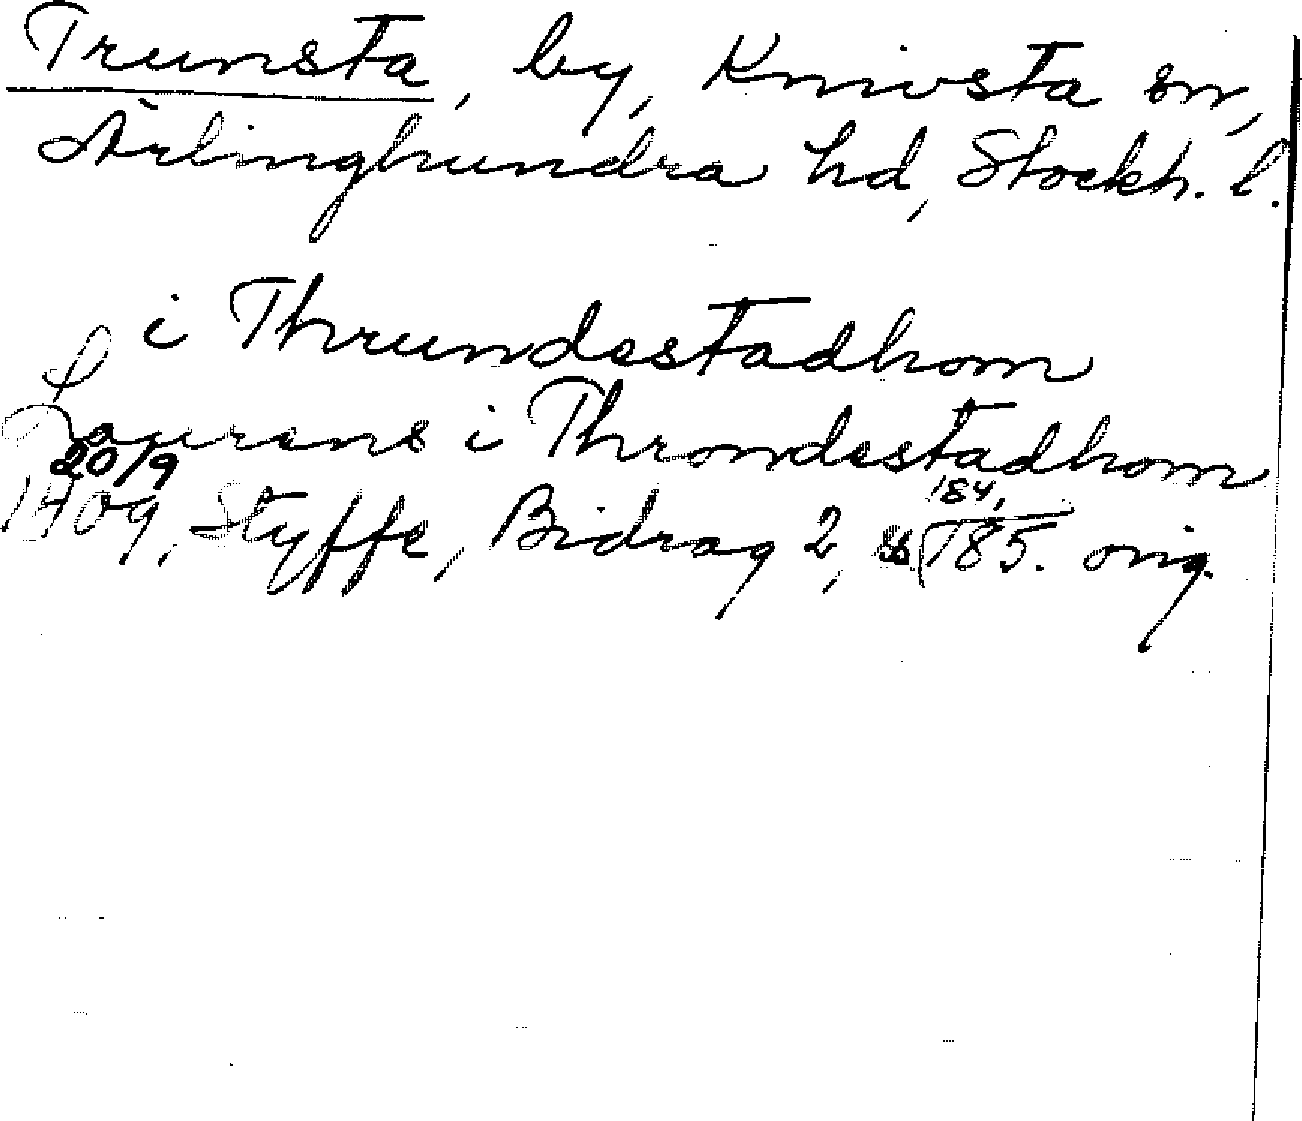 Trunsta, by, Knivsta sn,
Ärlinghundra hd, Stockh. l.
i Thrundestadhom
Laurens i Throndestadhom
20/9
1409, Styffe, Bidrag 2, s. 184, 185. orig.